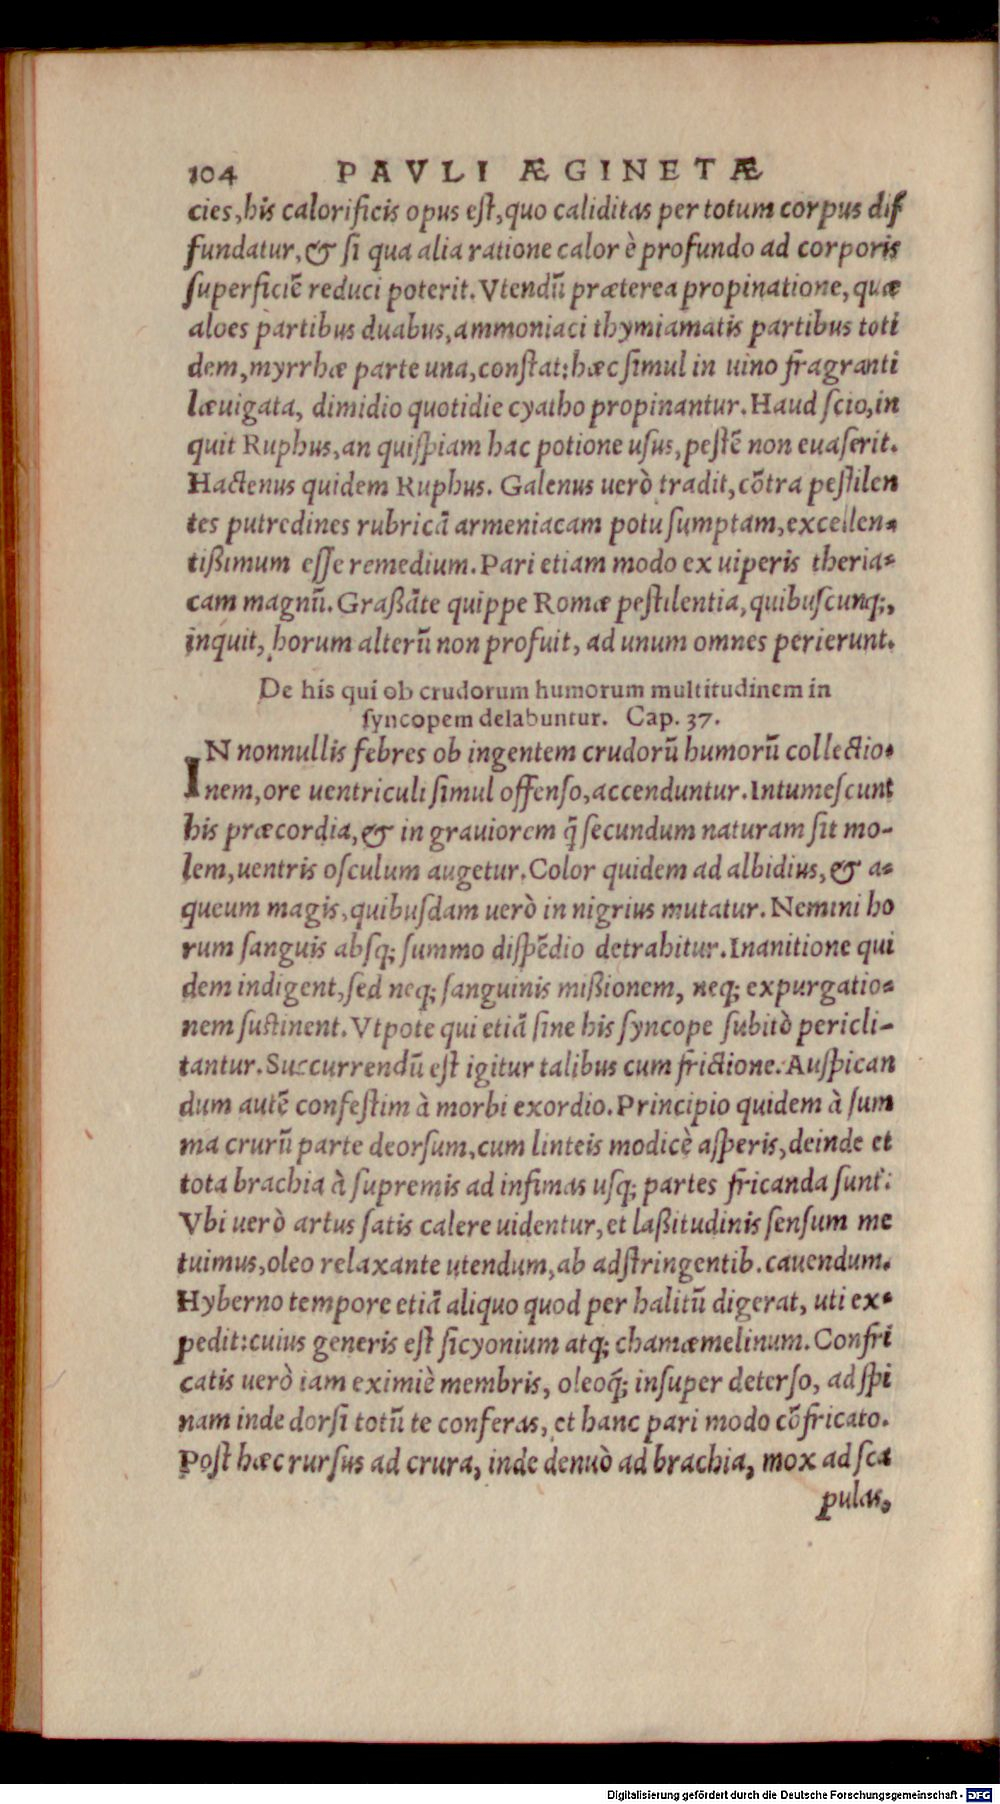 104 PAVLI ÆGINETÆ
cies, his calorificis opus eſt, quo caliditas per totum corpus diſ
fundatur, & ſi qua alia ratione calor è profundo ad corporis
ſuperficiẽ reduci poterit. Vtendũ præterea propinatione, quæ
aloes partibus duabus, ammoniaci thymiamatis partibus toti
dem, myrrhæ parte una, conſtat: hæc ſimul in uino fragranti
læuigata, dimidio quotidie cyatho propinantur. Haud ſcio, in
quit Ruphus, an quiſpiam hac potione uſus, peſtẽ non euaſerit.
Hactenus quidem Ruphus. Galenus uerò tradit, cõtra peſtilen
tes putredines rubricã armeniacam potu ſumptam, excellen-
tißimum eſſe remedium. Pari etiam modo ex uiperis theria-
cam magnũ. Graßãte quippe Romæ peſtilentia, quibuſcunq;,
inquit, horum alterũ non profuit, ad unum omnes perierunt.
De his qui ob crudorum humorum multitudinem in
ſyncopem delabuntur. Cap. 37.
IN nonnullis febres ob ingentem crudorũ humorũ collectio-
nem, ore uentriculi ſimul offenſo, accenduntur. Intumeſcunt
his præcordia, & in grauiorem q̃ ſecundum naturam ſit mo-
lem, uentris oſculum augetur. Color quidem ad albidius, & a-
queum magis, quibuſdam uerò in nigrius mutatur. Nemini ho
rum ſanguis abſq; ſummo diſpẽdio detrahitur. Inanitione qui
dem indigent, ſed neq; ſanguinis mißionem, neq; expurgatio-
nem ſuſtinent. Vtpote qui etiã ſine his ſyncope ſubitò pericli-
tantur. Succurrendũ eſt igitur talibus cum frictione. Auſpican
dum autẽ confeſtim à morbi exordio. Principio quidem à ſum
ma crurũ parte deorſum, cum linteis modicè aſperis, deinde et
tota brachia à ſupremis ad infimas uſq; partes fricanda ſunt:
Vbi uerò artus ſatis calere uidentur, et laßitudinis ſenſum me
tuimus, oleo relaxante utendum, ab adſtringentib. cauendum.
Hyberno tempore etiã aliquo quod per halitũ digerat, uti ex-
pedit: cuius generis eſt ſicyonium atq; chamæmelinum. Confri
catis uerò iam eximiè membris, oleoq́; inſuper deterſo, ad ſpi
nam inde dorſi totũ te conferas, et hanc pari modo cõfricato.
Poſt hæc rurſus ad crura, inde denuò ad brachia, mox ad ſca
pulas,
Digitalisierung gefördert durch die Deutsche Forschungsgemeinschaft - DFG